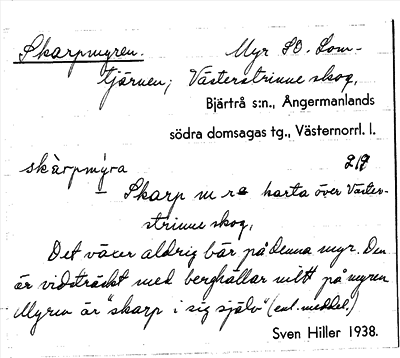 Skarpmyren. Myr SO. Lom-
tjärnen, Västerstrinne skog,
Bjärtrå s:n., Ångermanlands
södra domsagas tg., Västernorrl. l.
skàrpmýra 2/9
— Skarp m-ra karta över Väster-
strinne skog,
Det växer aldrig bär på denna myr. Den
är vidsträckt med berghällar mitt på myren
Myren är "skarp i sig själv" (enl. meddel.)
Sven Hiller 1938.